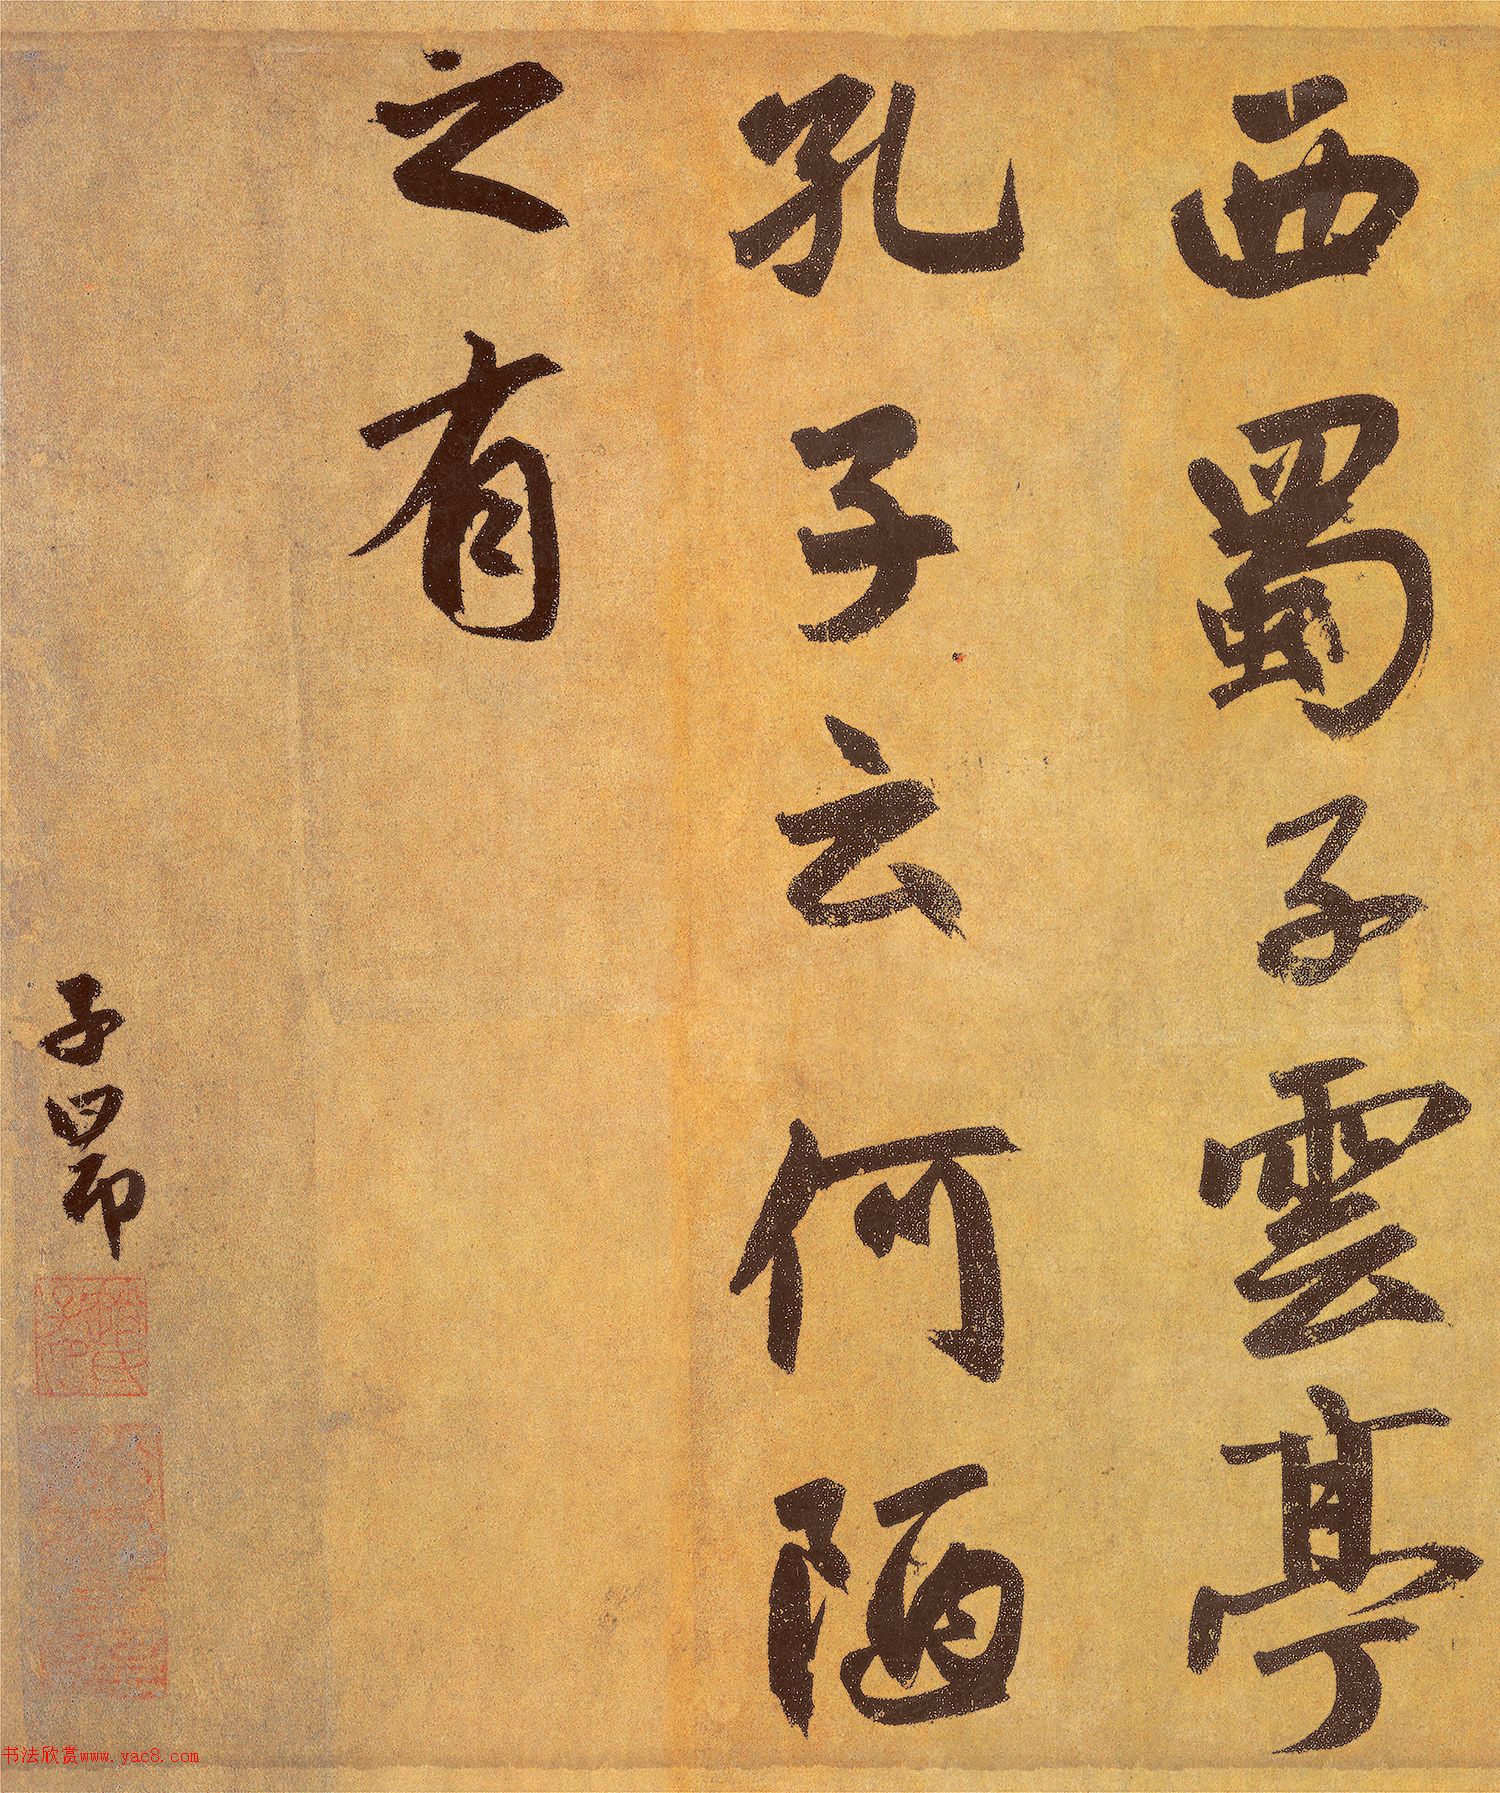 西蜀子雲亭
孔子云何陋
之有
子昂
趙氏子昂
书法欣赏www.yac8.com